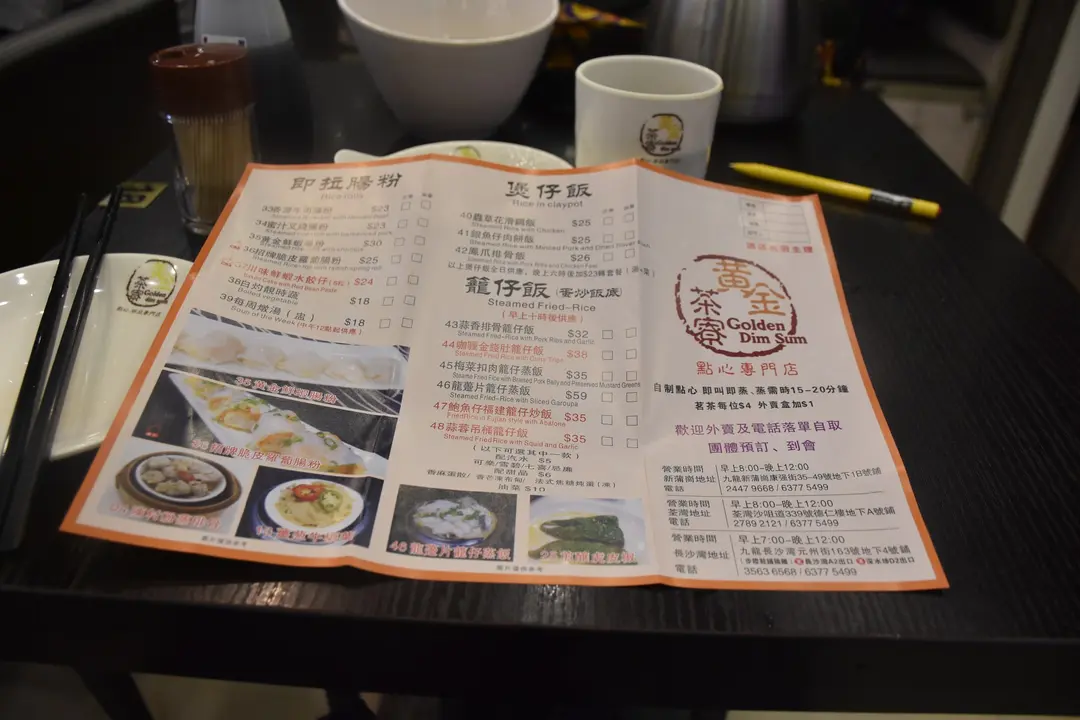 即拉腸粉
Rice Rolls
$23
34蜜汁叉燒腸粉 $23
35黃金鮮蝦腸粉 $30
36招牌脆皮蘿蔔腸粉 $25
37川味鮮蝦水餃仔(5粒) $24
38白灼靚時蔬 $18
Boiled vegetable
39每周燉湯（盅） $18
Soup of the Week(中午12點起供應)
35黃金鮮蝦腸粉
36招牌脆皮蘿蔔腸粉
圖片僅供參考
煲仔飯
Rice in claypot
40蟲草花滑雞飯 $25
Steamed Rice with Chicken
41銀魚仔肉餅飯 $25
42鳳爪排骨飯 $26
Steamed Rice with Pork Ribs and Chicken Feet
以上煲仔飯全日供應，晚上六時後加$23轉套餐
籠仔飯(蛋炒飯底)
Steamed Fried-Rice
(早上十時後供應)
43蒜香排骨籠仔飯 $32
Steamed Fried-Rice with Pork Ribs and Garlic
44咖喱金錢肚籠仔飯 $38
45梅菜扣肉籠仔蒸飯 $35
Steamed Fried-Rice with Braised Pork Belly and Preserved Mustard Greens
46龍躉片籠仔蒸飯 $59
Steamed Fried-Rice with Sliced Garoupa
47鮑魚仔福建籠仔炒飯 $35
Fried Rice in Fujian Style with Abalone
48蒜蓉吊桶籠仔飯 $35
Steamed Fried Rice with Squid and Garlic
(以下可選其中一款)
配汽水 $5
可樂/雪碧/七喜/忌廉
配甜品 $6
油菜 $10
46龍躉片籠仔蒸飯
圖片僅供參考
黃金
茶寮
Golden
Dim Sum
點心專門店
自制點心 即叫即蒸、蒸需時15-20分鐘
茗茶每位$4 外賣盒加$1
歡迎外賣及電話落單自取
團體預訂、到會
營業時間 早上8:00-晚上12:00
新蒲崗地址 九龍新蒲崗康強街35-49號地下1B號舖
電話 2447 9668 / 6377 5499
營業時間 早上8:00-晚上12:00
荃灣地址 荃灣沙咀道339號德仁樓地下A號舖
電話 2789 2121 / 6377 5499
營業時間 早上7:00-晚上12:00
長沙灣地址 九龍長沙灣元州街163號地下4號舖
電話 3563 6568 / 6377 5499
茶寮
Golden
dim sum
茶寮
Golden
dim sum